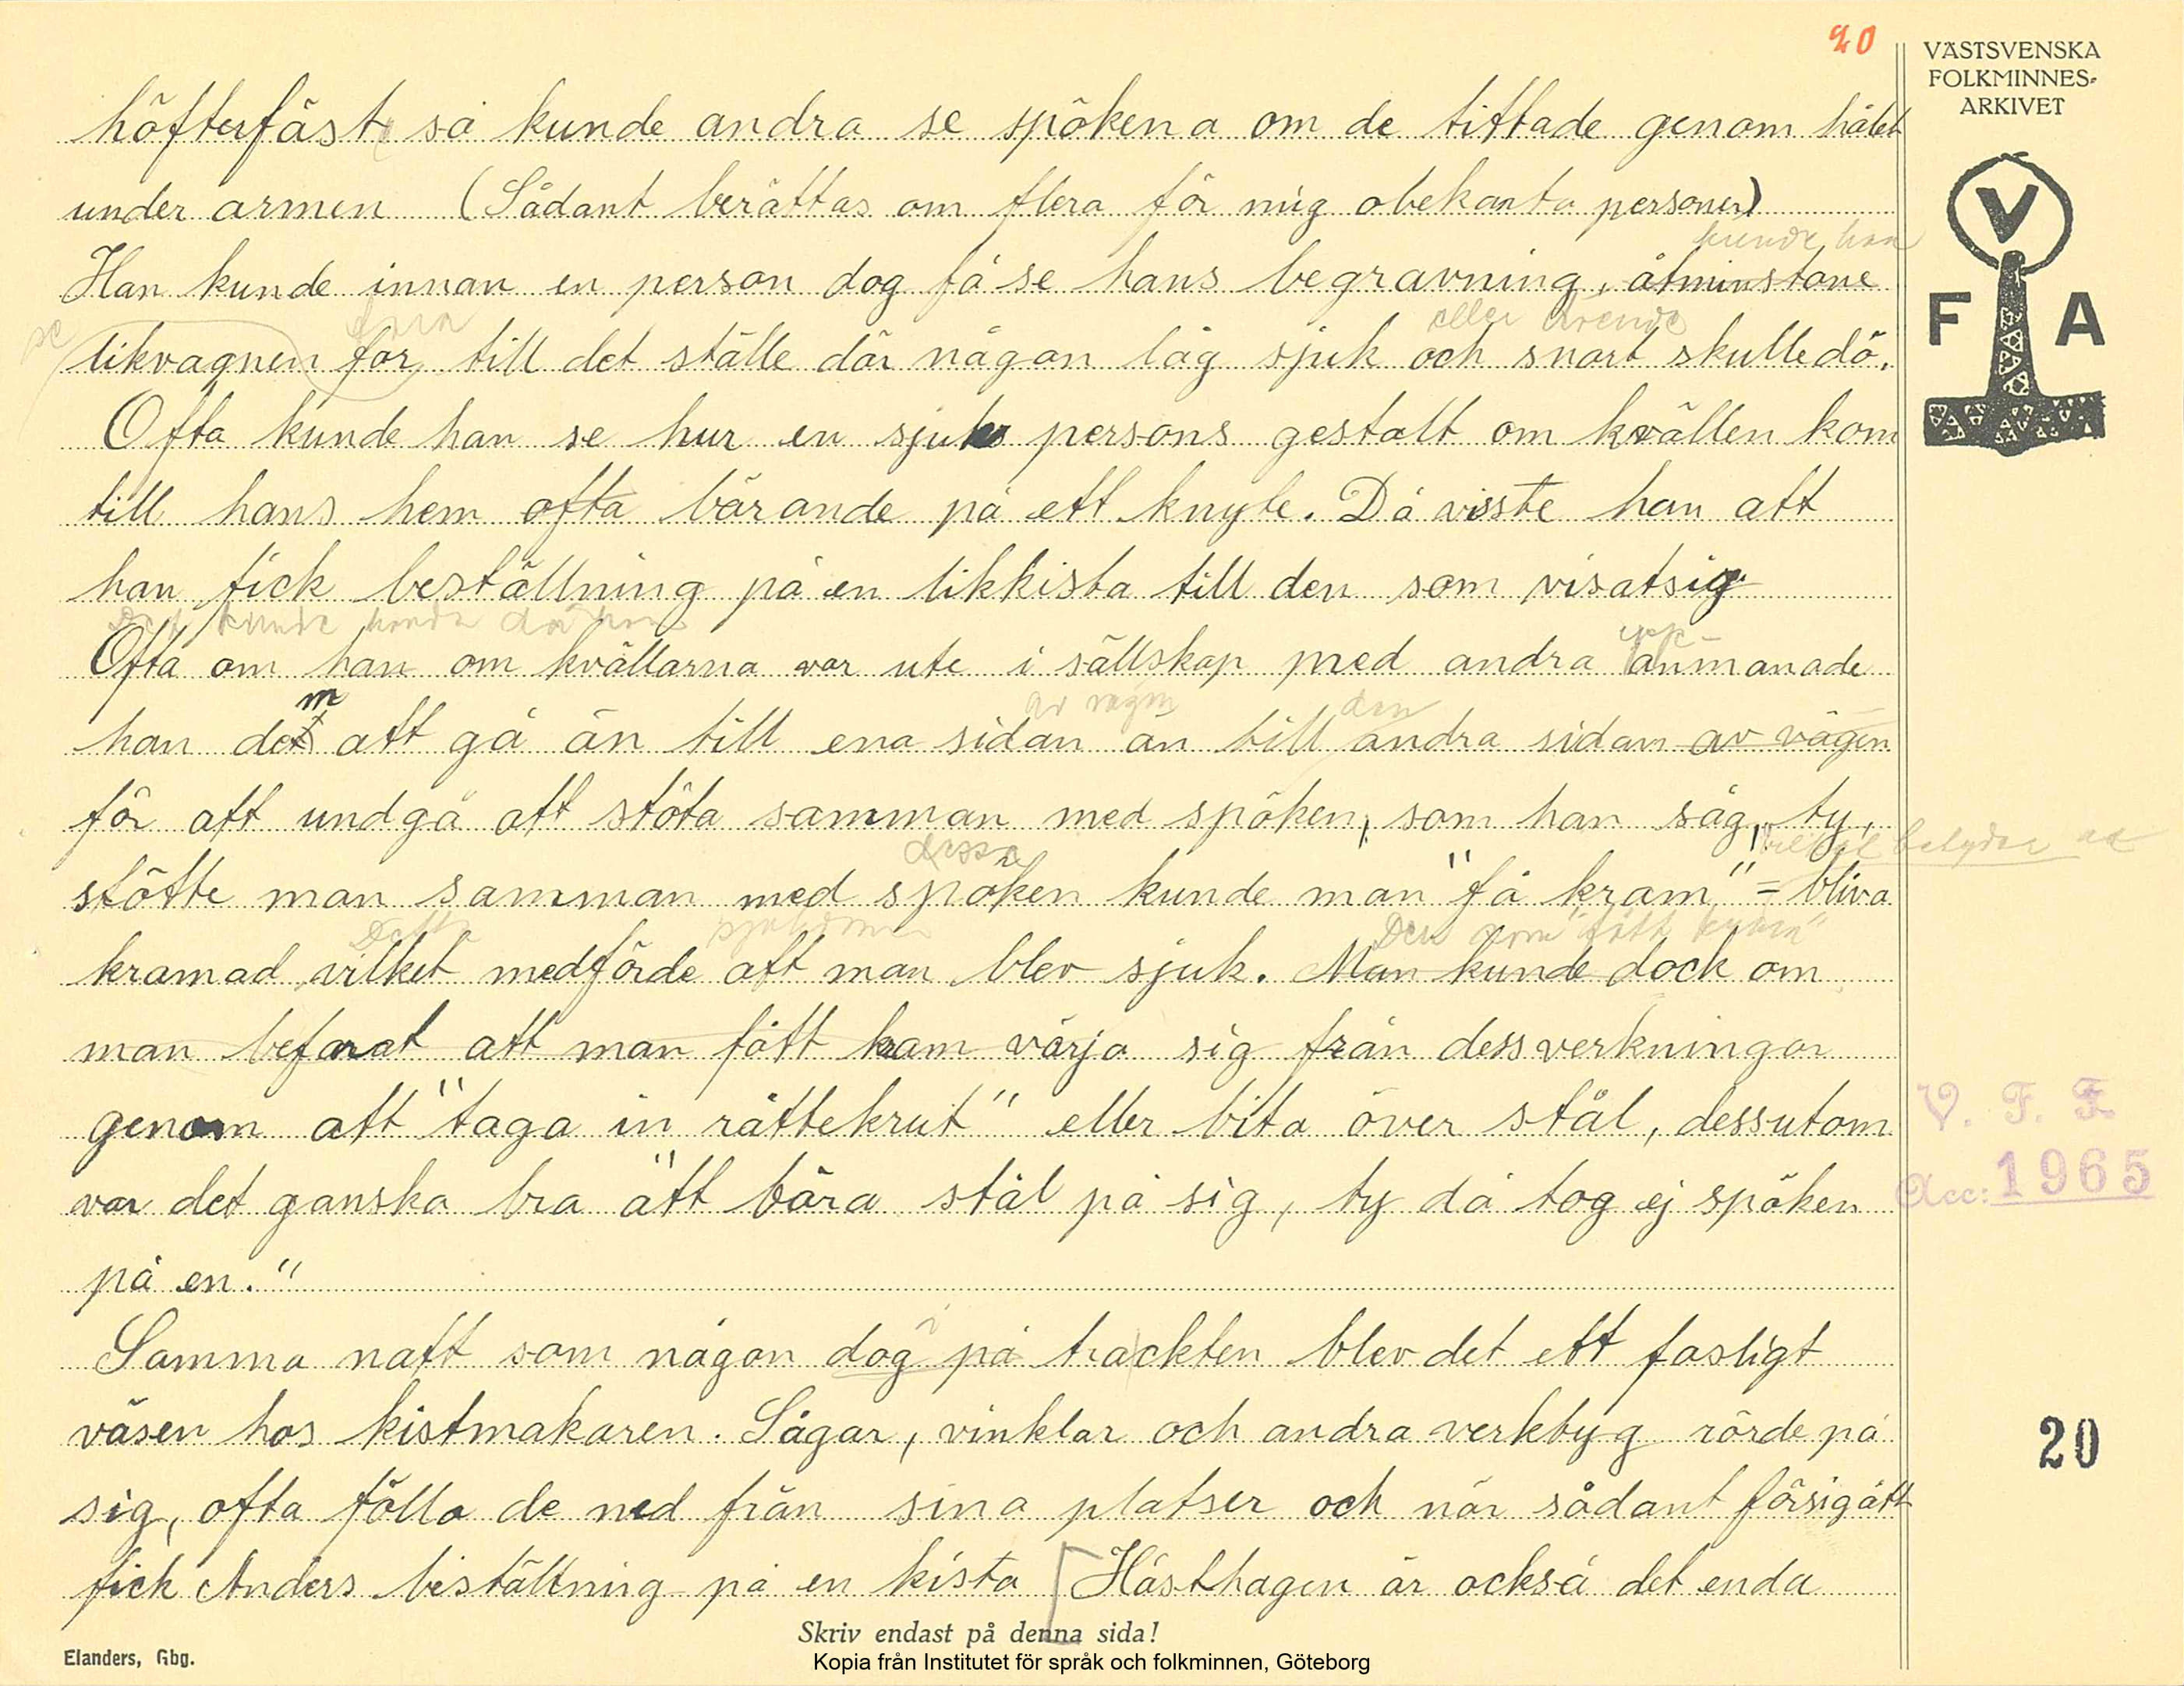 20
VÄSTSVENSKA
FOLKMINNES-
ARKIVET
V
F A
höfterfäst så kunde andra se spökena om de tittade genom hålet
under armen (Sådant berättas om flera för mig obekanta personer)
kunde han
Han kunde innan en person dog få se hans begravning, åtminstone
se fara eller ärende
likvagnen for till det ställe där någon låg sjuk och snart skulle dö.
Ofta kunde han se hur en sjuk persons gestalt om kvällen kom
till hans hem ofta bärande på ett knyte. Då visste han att
han fick beställning på en likkista till den som visat sig
Det kunde hända då han
upp-
Ofta om han om kvällarna var ute i sällskap med andra anmanade
m av vägen den
han det att gå än till ena sidan än till andra sidan av vägen
för att undgå att stöta samman med spöken, som han såg, ty,
dessa betyder att
stötte man samman med spöken kunde man "få kram" = bliva
Detta sjukdom Den som "fått kram"
kramad vilket medförde att man blev sjuk. Man kunde dock om
man befarat att man fått kram värja sig från dess verkningar
genom att "taga in råttekrut" eller bita över stål, dessutom
var det ganska bra "att bära stål på sig, ty då tog ej spöken
på en."
i
Samma natt som någon dog på trackten blev det ett fasligt
väsen hos kistmakaren. Sågar, vinklar och andra verktyg rörde på
sig, ofta föllo de ned från sina platser och när sådant försigått
fick Anders beställning på en kista [Hästhagen är också det enda
V. F. F.
Acc: 1965
20
Skriv endast på denna sida!
Elanders, Gbg.
Kopia från Institutet för språk och folkminnen, Göteborg